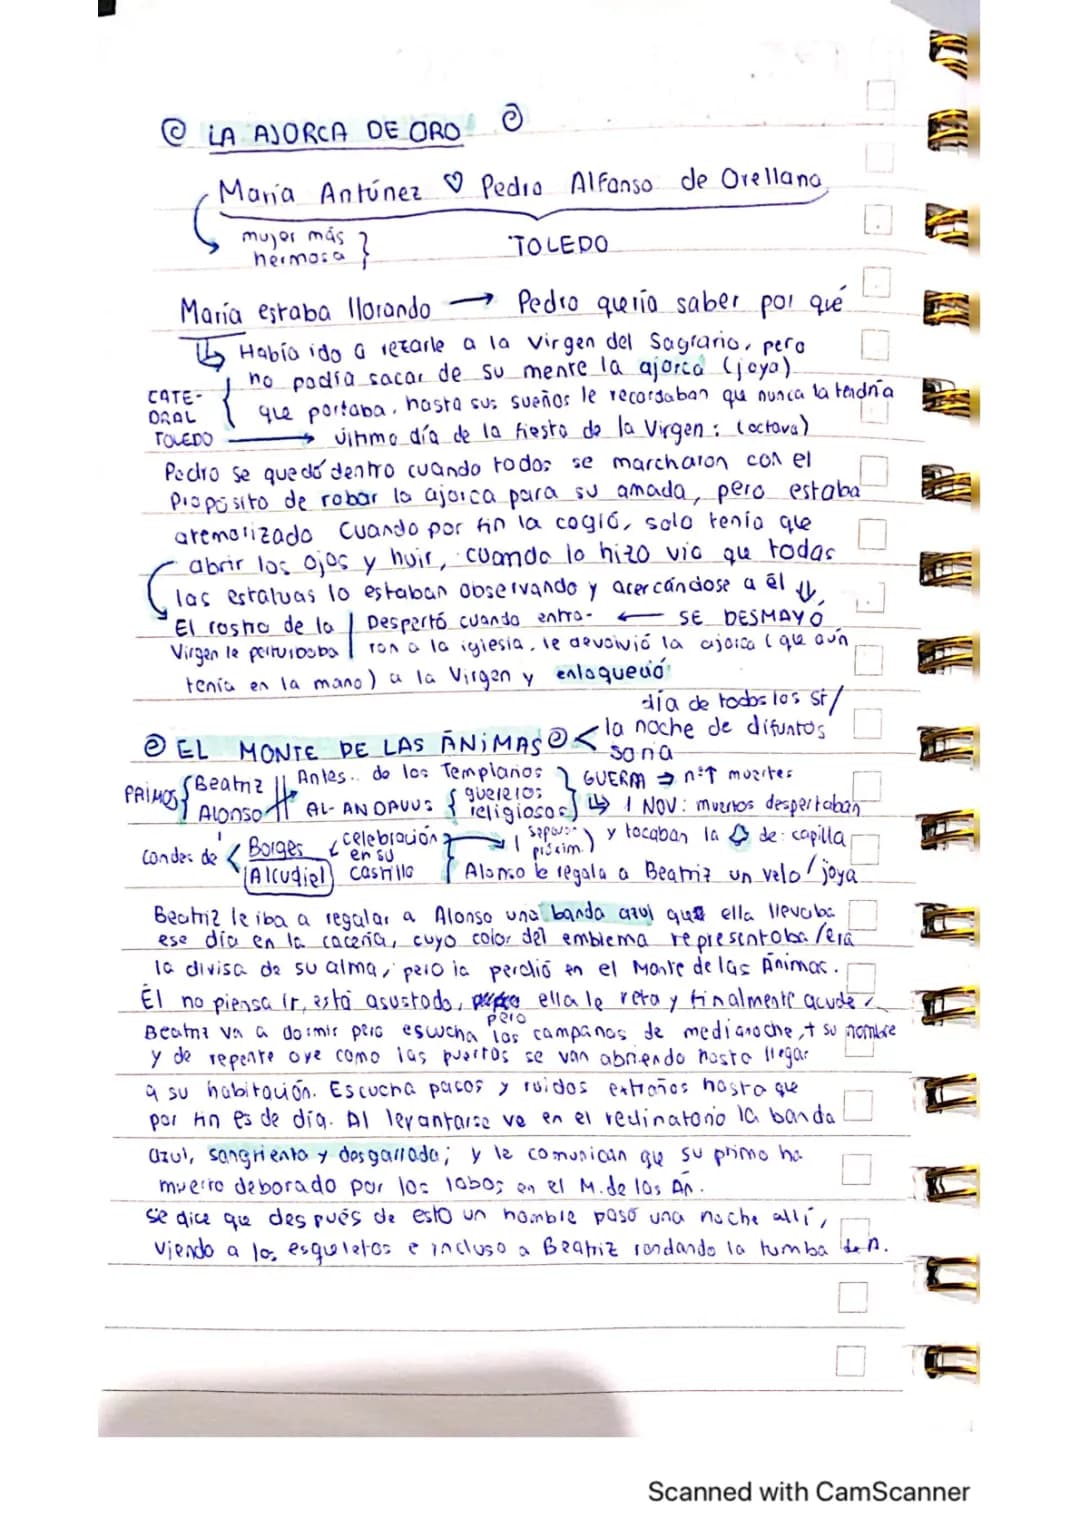 LA AJORCA DE ORO
María Antúnez ♡ Pedro Alfonso de Orellana
mujer más hermosa }
TOLEDO
María estaba llorando → Pedro quería saber por qué
Había ido a rezarle a la Virgen del Sagrario, pero
no podía sacar de su mente la ajorca (joya)
CATE-
DRAL
TOLEDO
que portaba, hasta sus sueños le recordaban que nunca la tendría
→ último día de la fiesta de la Virgen: (octava)
Pedro se quedó dentro cuando todos se marcharon con el
propósito de robar la ajorca para su amada, pero estaba
atemorizado Cuando por fin la cogió, solo tenía que
abrir los ojos y huir, cuando lo hizo vio que todas
las estatuas lo estaban observando y acercándose a él ↓
El rostro de la
Virgen le perturbaba
Despertó cuando entra- ← SE DESMAYÓ
ron a la iglesia, le devolvió la ajorca (que aún
tenía en la mano) a la Virgen y enloqueció
día de todos los st/
EL MONTE DE LAS ÁNIMAS < la noche de difuntos
soria
PRIMOS { Beatriz
Alonso
Antes.. de los Templarios
AL-ANDALUS { guerreros
religiosos }
GUERRA ⇒ nº↑ muertes
↳ 1 NOV: muertos despertaban
y tocaban la de capilla
condes de < Borges
Alcudiel
celebración
en su
castillo
Alonso le regala a Beatriz un velo/joya
Beatriz le iba a regalar a Alonso una banda azul que ella llevaba
ese día en la cacería, cuyo color del emblema representaba/era
la divisa de su alma, pero la perdió en el Monte de las Ánimas.
Él no piensa ir, está asustado, pero ella le reta y finalmente acude
Beatriz va a dormir pero escucha las campanas de medianoche, + su nombre
y de repente oye como las puertas se van abriendo hasta llegar
a su habitación. Escucha pasos y ruidos extraños hasta que
por fin es de día. Al levantarse ve en el reclinatorio la banda
azul, sangrienta y desgarrada; y le comunican que su primo ha
muerto deborado por los lobos en el M. de las Án.
Se dice que después de esto un hombre pasó una noche allí,
viendo a los esqueletos e incluso a Beatriz rondando la tumba de A.
Scanned with CamScanner